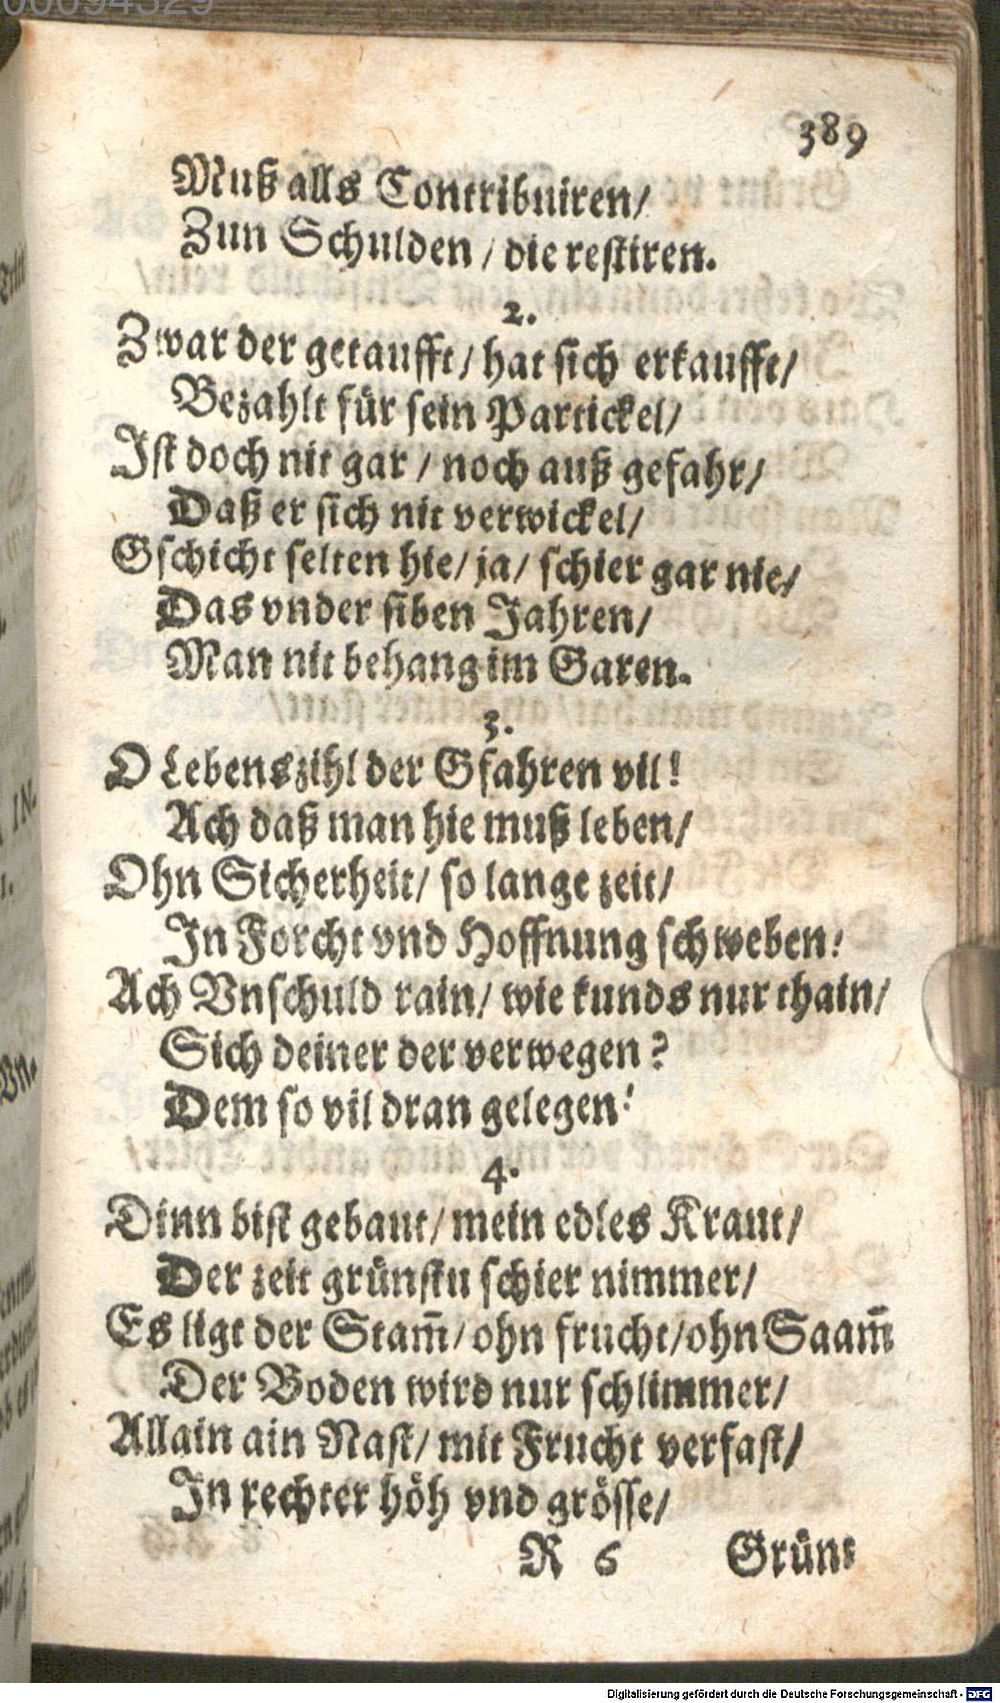 00094329
389
Muß alls Contribuiren/
Zun Schulden / die restiren.
2.
Zwar der getaufft/ hat sich erkaufft/
Bezahlt für sein Partickel/
Ist doch nit gar / noch auß gefahr/
Daß er sich nit verwickel/
Gschicht selten hie/ ja/ schier gar nie/
Das vnder siben Jahren/
Man nit behang im Garen.
3.
O Lebenszihl der Gfahren vil!
Ach daß man hie muß leben/
Ohn Sicherheit/ so lange zeit/
In Forcht vnd Hoffnung schweben!
Ach Vnschuld rain/ wie kunds nur thain/
Sich deiner der verwegen?
Dem so vil dran gelegen!
4.
Dinn bist gebaut/ mein edles Kraut/
Der zeit grünstu schier nimmer/
Es ligt der Stam̄/ ohn frucht/ohn Saam̄
Der Boden wird nur schlimmer/
Allain ain Nast/ mit Frucht verfast/
In rechter höh vnd grösse/
R 6 Grün⸗
Digitalisierung gefördert durch die Deutsche Forschungsgemeinschaft - DFG